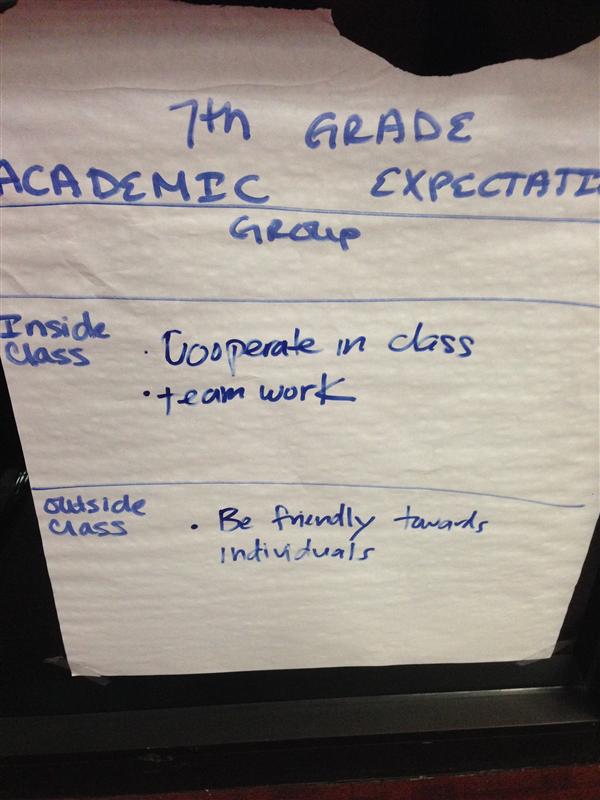 7th GRADE
ACADEMIC EXPECTATI
Group
Inside
Class
· Cooperate in class
· team work
outside
class
· Be friendly towards
individuals